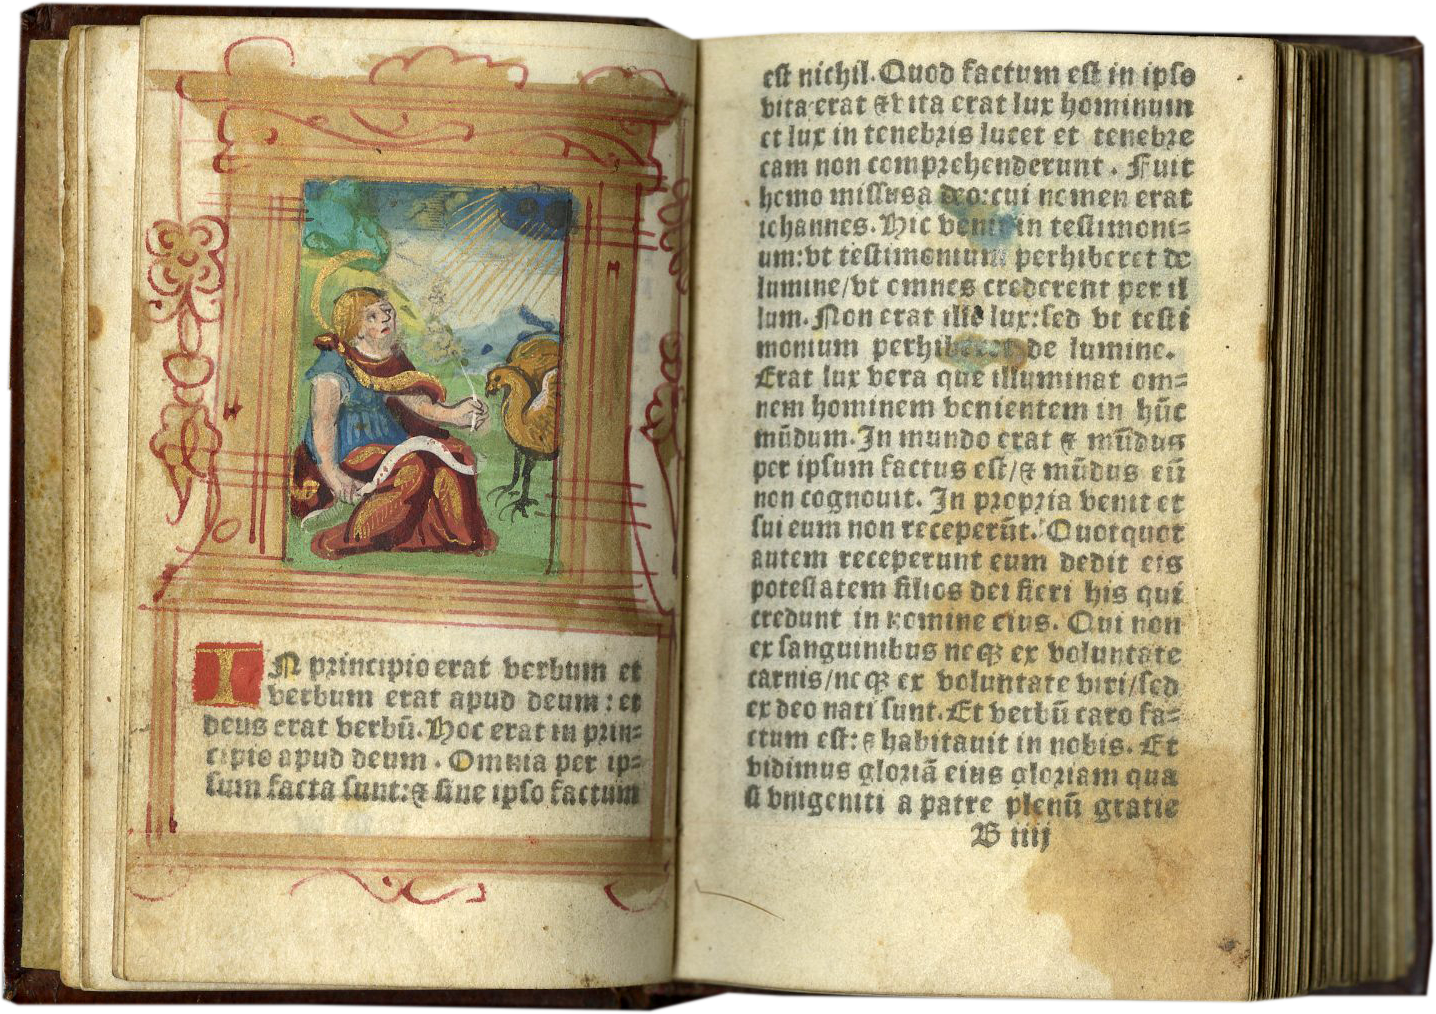 IN principio erat verbum et
verbum erat apud deum: et
deus erat verbū. Hoc erat in prin=
cipio apud deum. Omnia per ip=
sum facta sunt: ⁊ sine ipso factum
est nichil. Quod factum est in ipso
vita erat ⁊ vita erat lux hominum
et lux in tenebris lucet et tenebre
eam non comprehenderunt. Fuit
homo missus a deo: cui nomen erat
iohannes. Hic venit in testimoni=
um: vt testimonium perhiberet de
lumine/vt omnes crederent per il
lum. Non erat ille lux: sed vt testi
monium perhiberet de lumine.
Erat lux vera que illuminat om=
nem hominem venientem in hūc
mūdum. In mundo erat ⁊ mūdus
per ipsum factus est/⁊ mūdus eū
non cognouit. In propria venit et
sui eum non receperūt. Quotquot
autem receperunt eum dedit eis
potestatem filios dei fieri his qui
credunt in nomine eius. Qui non
ex sanguinibus neqꝫ ex voluntate
carnis/neqꝫ ex voluntate viri/sed
ex deo nati sunt. Et verbū caro fa=
ctum est: ⁊ habitauit in nobis. Et
vidimus gloriā eius gloriam qua
si vnigeniti a patre plenū gratie
B iiij